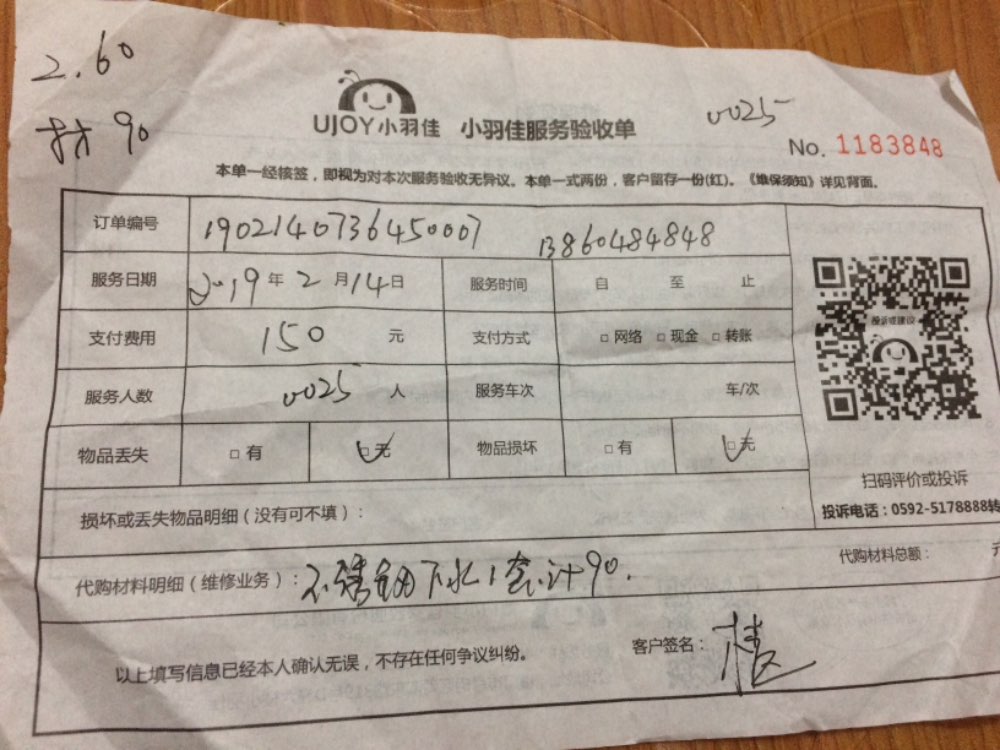 2.60
材 90
UJOY小羽佳 小羽佳服务验收单
0025
No. 1183848
本单一经核签，即视为对本次服务验收无异议。本单一式两份，客户留存一份(红)。《维保须知》详见背面。
订单编号 1902140736450007 13860484848
服务日期 2019 年 2 月 14 日 服务时间 自 至 止
支付费用 150 元 支付方式 □ 网络 □ 现金 □ 转账
服务人数 0025 人 服务车次 车/次
物品丢失 □ 有 □ 无 物品损坏 □ 有 □ 无
投诉或建议
扫码评价或投诉
投诉电话：0592-5178888转
损坏或丢失物品明细（没有可不填）：
代购材料明细（维修业务）：不锈钢下水1套计90. 代购材料总额：
以上填写信息已经本人确认无误，不存在任何争议纠纷。 客户签名：